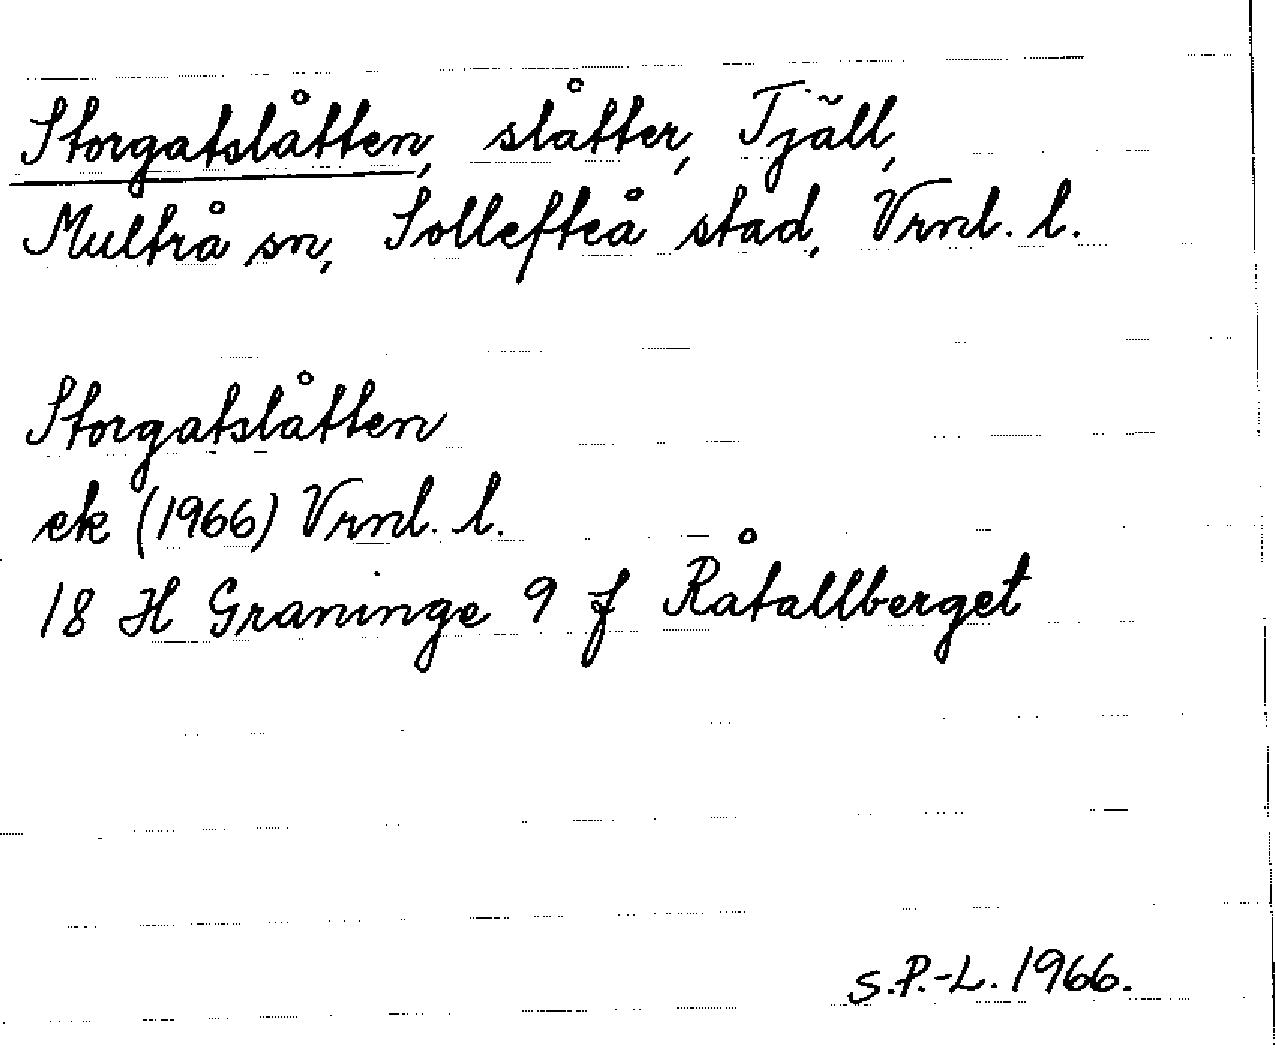 Storgatslåtten, slåtter, Tjäll,
Multrå sn, Sollefteå stad, Vrnl. l.
Storgatslåtten
ek (1966) Vrnl. l.
18 H Graninge 9 f Råtallberget
S.P.-L. 1966.